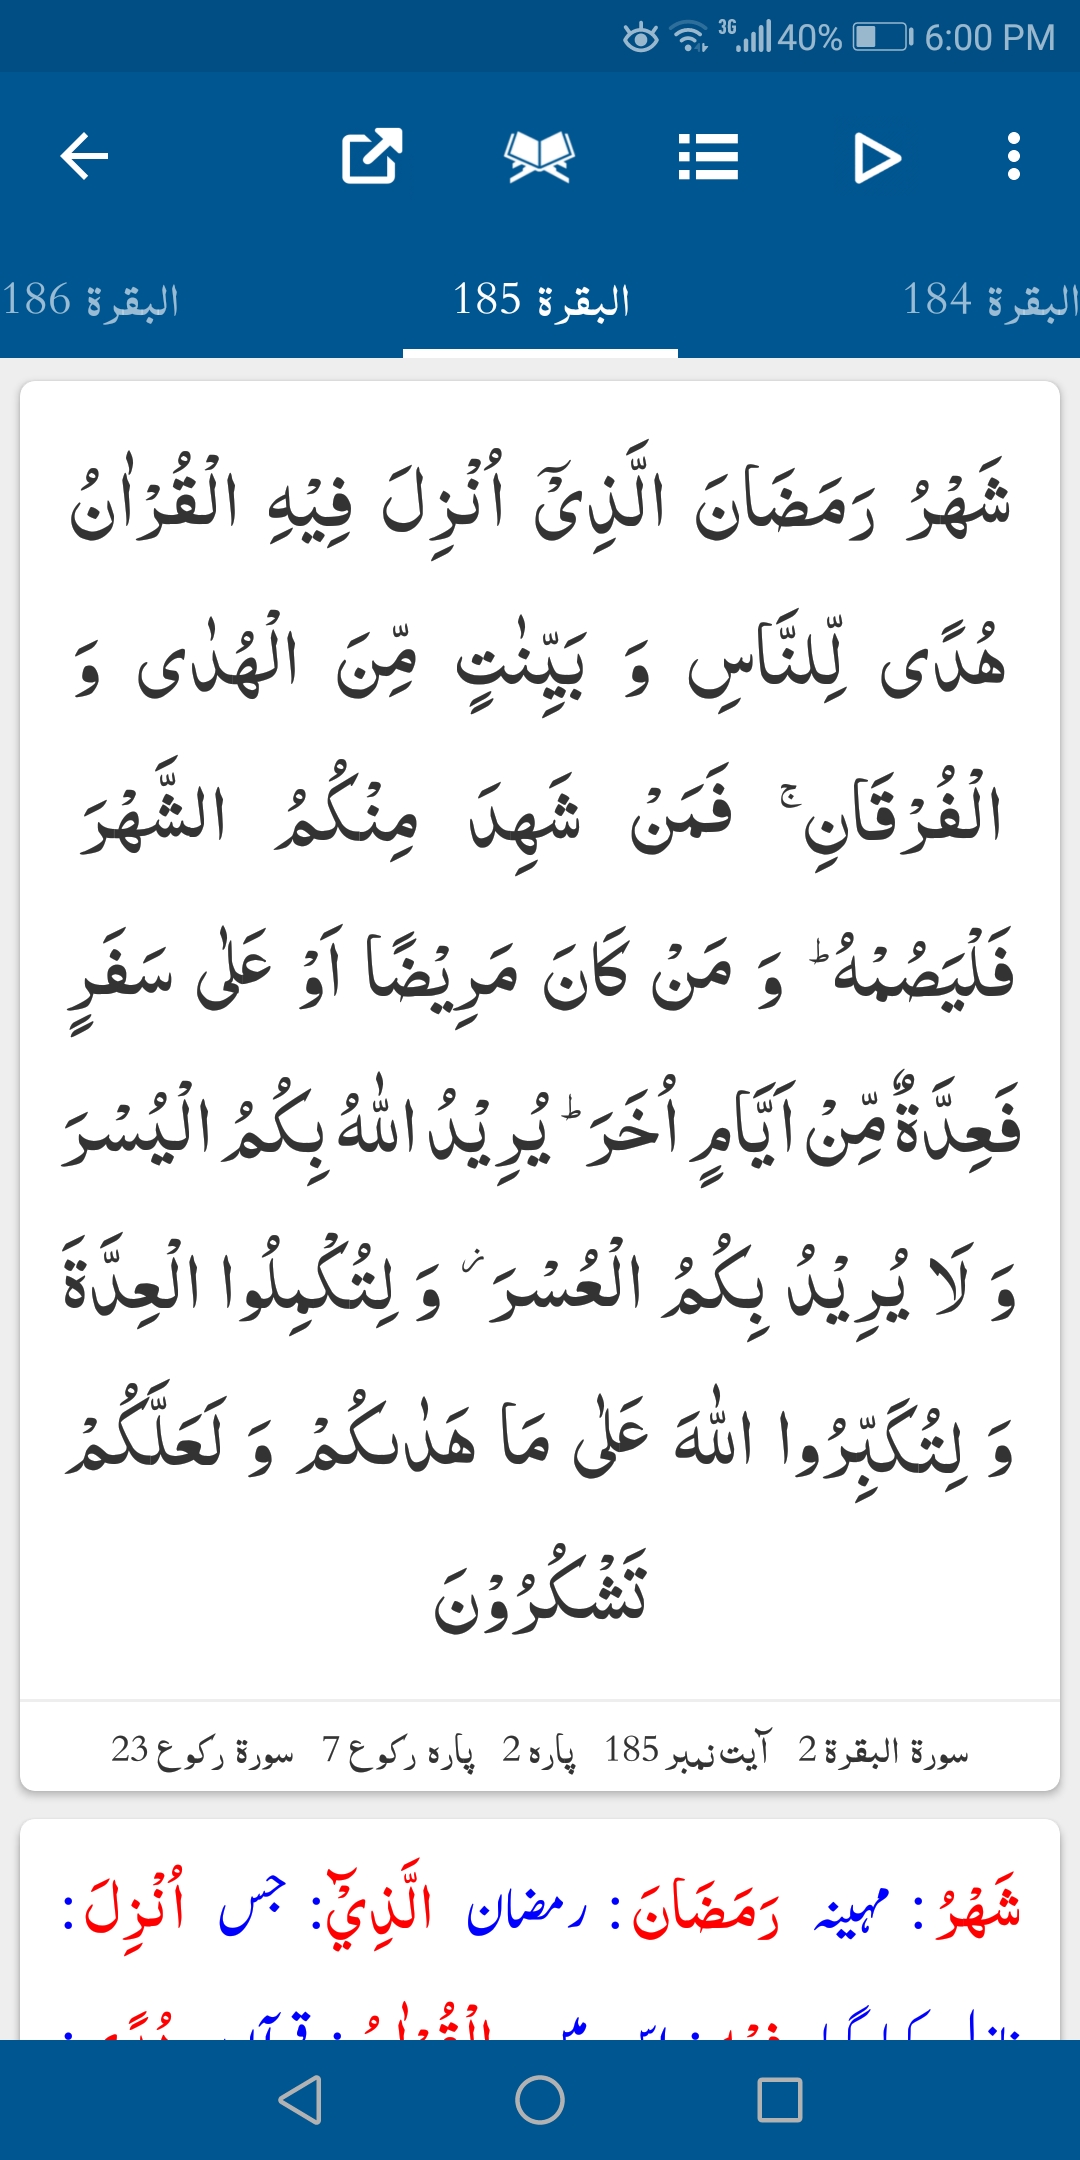 3G 40% 6:00 PM
البقرة 184 البقرة 185 البقرة 186
شَهْرُ رَمَضَانَ الَّذِیْۤ اُنْزِلَ فِیْهِ الْقُرْاٰنُ
هُدًی لِّلنَّاسِ وَ بَیِّنٰتٍ مِّنَ الْهُدٰی وَ
الْفُرْقَانِ ۚ فَمَنْ شَهِدَ مِنْكُمُ الشَّهْرَ
فَلْیَصُمْهُ ؕ وَ مَنْ كَانَ مَرِیْضًا اَوْ عَلٰی سَفَرٍ
فَعِدَّةٌ مِّنْ اَیَّامٍ اُخَرَ ؕ یُرِیْدُ اللّٰهُ بِكُمُ الْیُسْرَ
وَ لَا یُرِیْدُ بِكُمُ الْعُسْرَ ؗ وَ لِتُكْمِلُوا الْعِدَّةَ
وَ لِتُكَبِّرُوا اللّٰهَ عَلٰی مَا هَدٰىكُمْ وَ لَعَلَّكُمْ
تَشْكُرُوْنَ
سورۃ البقرۃ 2 آیت نمبر 185 پارہ 2 پارہ رکوع 7 سورۃ رکوع 23
شَهْرُ : مہینہ رَمَضَانَ : رمضان الَّذِيْٓ : جس اُنْزِلَ :